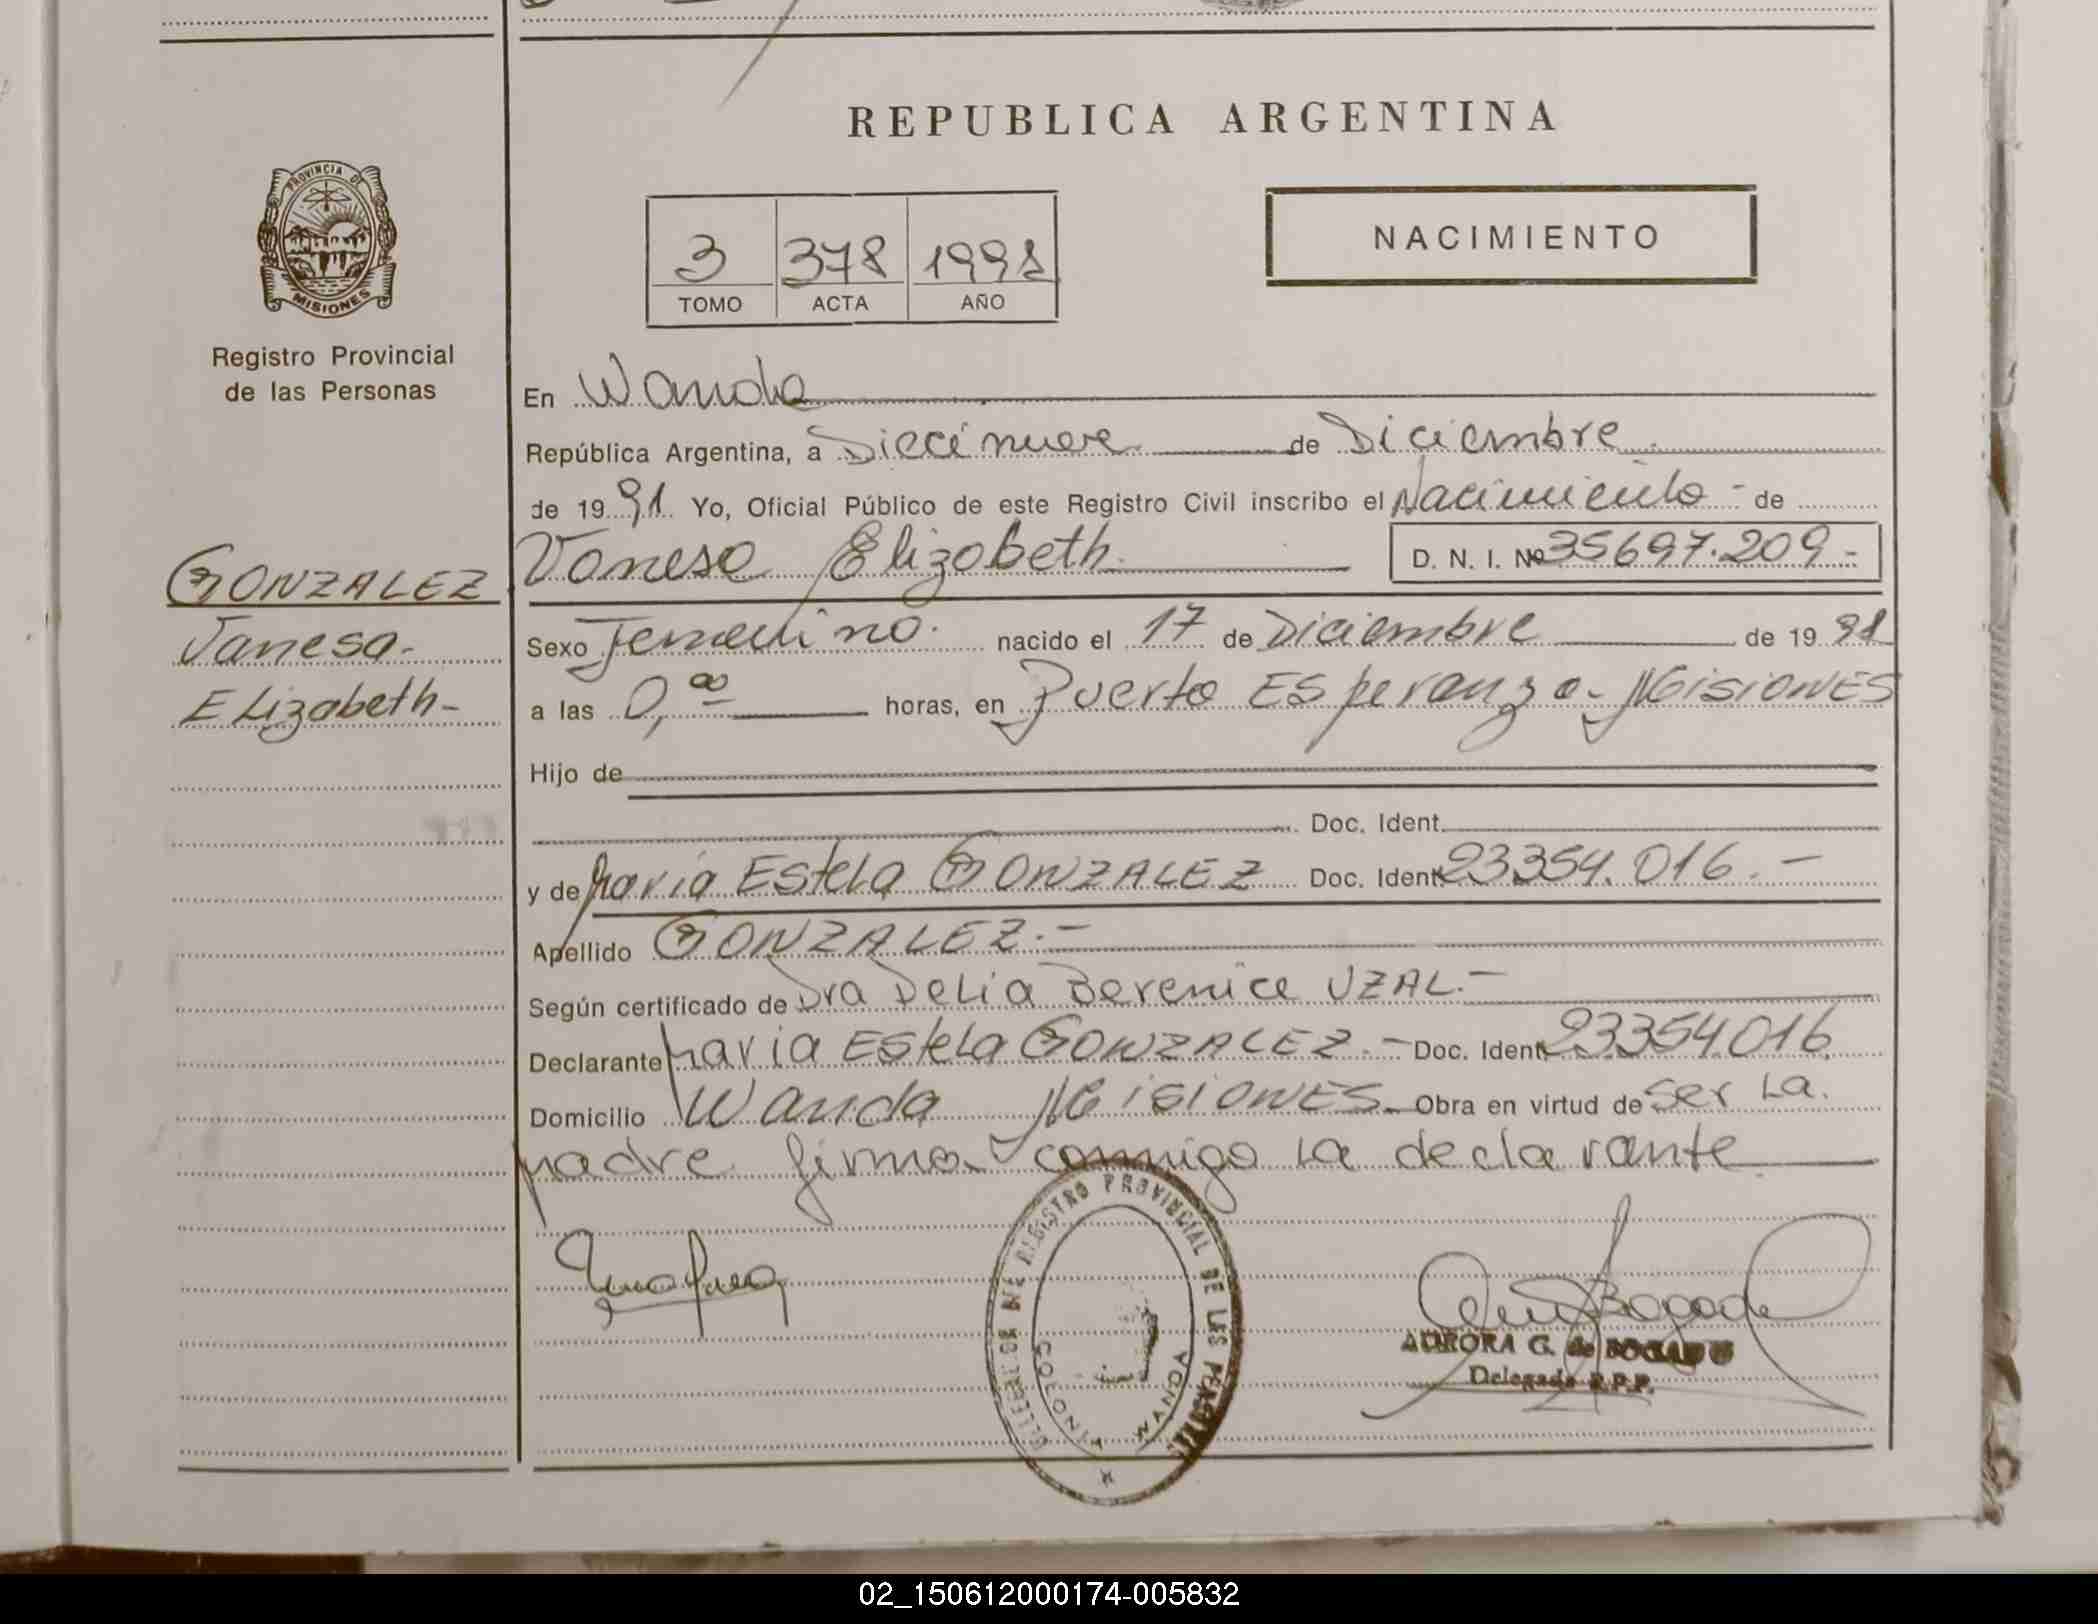 REPUBLICA ARGENTINA
PROVINCIA DE
MISIONES
Registro Provincial
de las Personas
NACIMIENTO
3 378 1991
TOMO ACTA AÑO
En Wanda
República Argentina, a Diecinueve de Diciembre
de 1991. Yo, Oficial Público de este Registro Civil inscribo el Nacimiento - de
Vanesa Elizabeth D. N. I. Nº 35697.209.-
GONZALEZ
Vanesa.
Elizabeth-
Sexo Femenino. nacido el 17 de Diciembre de 1991
a las 0,00 horas, en Puerto Esperanza - MISIONES
Hijo de
Doc. Ident.
y de María Estela GONZALEZ Doc. Ident. 23354.016.-
Apellido GONZALEZ.-
Según certificado de Dra Delia Berenice UZAL.-
Declarante María Estela GONZALEZ.- Doc. Ident. 23354.016.
Domicilio Wanda MISIONES. Obra en virtud de ser la
madre firma conmigo la declarante
REGISTRO PROVINCIAL DE LAS
MISIONES
WANDA
AURORA G. de BOGADO
Delegada R.P.P.
02_150612000174-005832